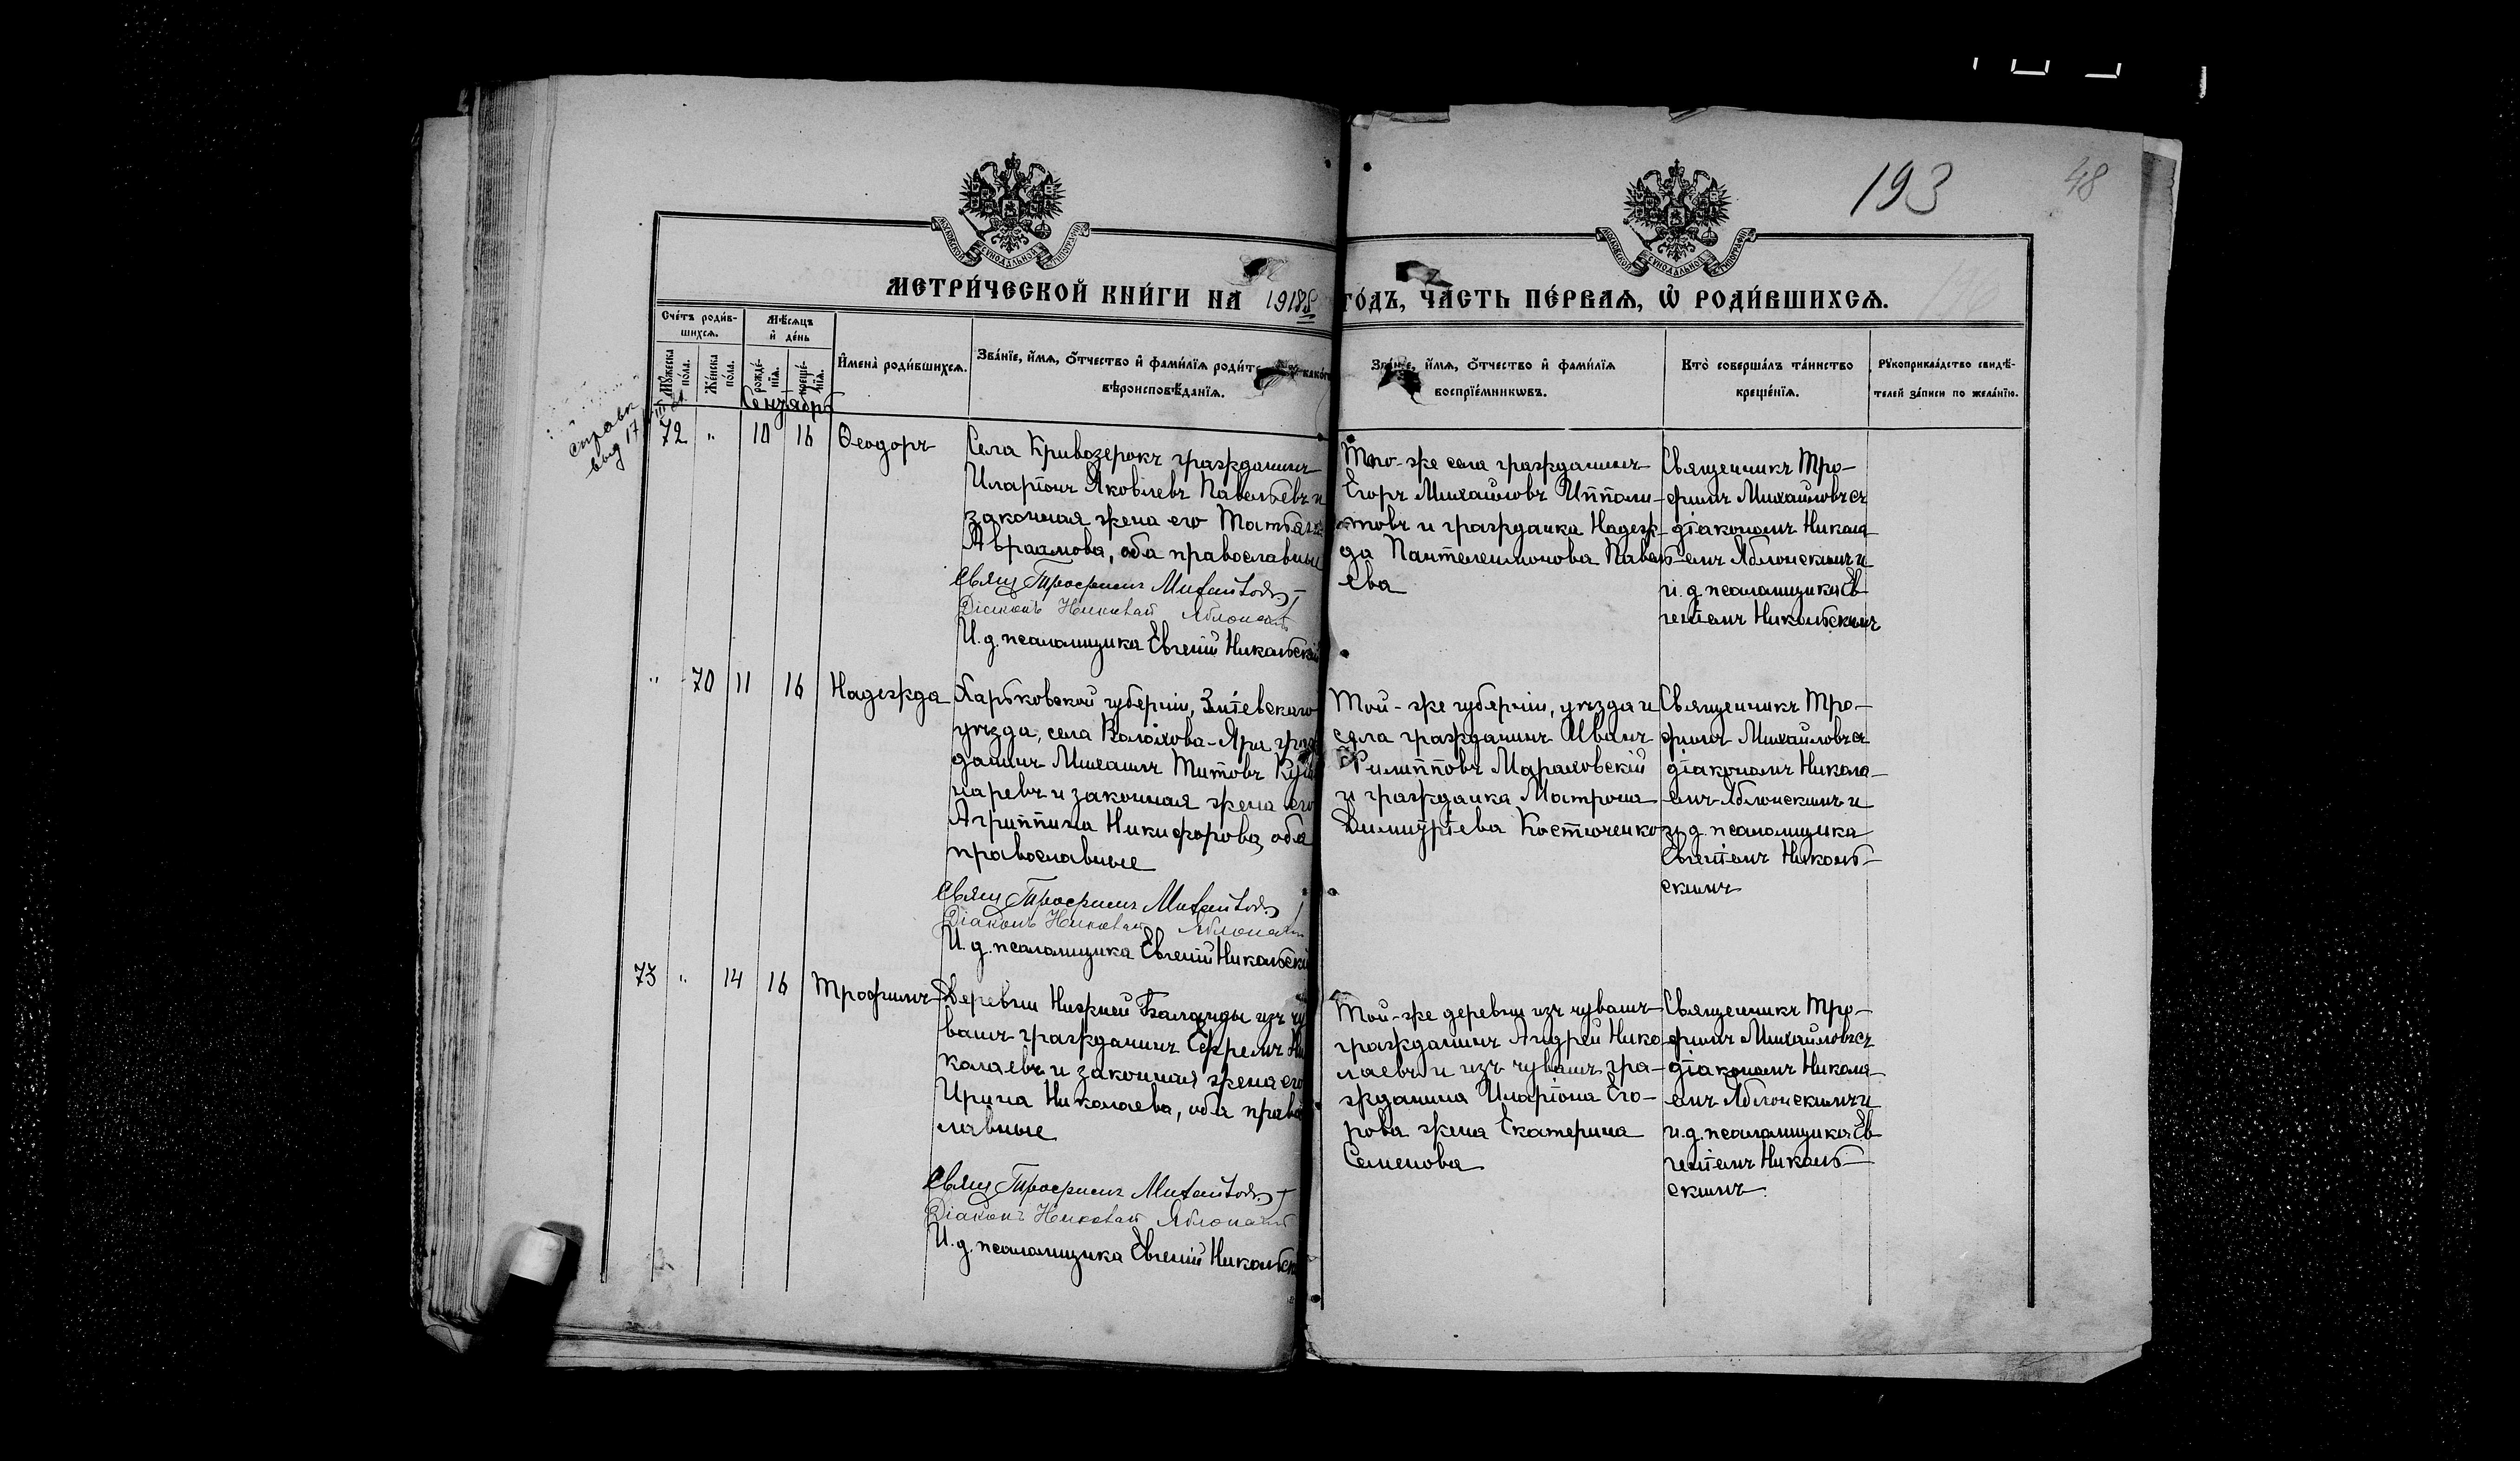 193
48
МОСКОВСКОЙ СѴНОДАЛЬНОЙ ТИПОГРАФІИ
МОСКОВСКОЙ СѴНОДАЛЬНОЙ ТИПОГРАФІИ
МЕТРИ́ЧЕСКОЙ КНИ́ГИ НА 1918
ГО́ДЪ, ЧА́СТЬ ПЕ́РВАѦ, Ѡ҆ РОДИ́ВШИХСѦ.
Сче́тъ роди́в-
шихсѧ.
Мѣ́сѧцъ
и҆ де́нь
Мꙋ́жеска
по́ла.
Же́нска
по́ла.
рожде́-
нїѧ.
креще́-
нїѧ.
И҆мена̀ роди́вшихсѧ.
Зва́нїе, и҆́мѧ, ѻ҆́тчество и҆ фами́лїѧ
вѣроисповѣ́данїѧ.
Зва́нїе, и҆́мѧ, ѻ҆́тчество и҆ фами́лїѧ
воспрїе́мникѡвъ.
Кто̀ соверша́лъ та́инство
креще́нїѧ.
Рꙋкоприкла́дство свидѣ́-
телей за́писи по жела́нїю.
Сентябрь
справк
выд 17
72 " 10 16 Ѳеодоръ
Села Кривозерокъ гражданинъ
Иларіонъ Яковлевъ Павельевъ и
законная жена его
Авраамова, оба православные
Свящ Трофимъ Михайловъ
Діаконъ Николай Яблонскій
И. д. псаломщика Евгеній Никольскій
Того-же села гражданинъ
Егоръ Михайловъ Ипполи-
товъ и гражданка Надеж-
да Пантелеимонова Павель-
ева
Священникъ Тро-
фимъ Михайловъ съ
діакономъ Никола-
емъ Яблонскимъ и
и. д. псаломщика Ев-
геніемъ Никольскимъ
" 70 11 16 Надежда
Харьковской губерніи, Зміевскаго
уѣзда, села Волохова-Яра граж
данинъ Михаилъ Титовъ
наревъ и законная жена его
Агриппина Никифорова, оба
православные
Свящ Трофимъ Михайловъ
Діаконъ Николай Яблонскій
И. д. псаломщика Евгеній Никольскій
Той-же губерніи, уѣзда и
села гражданинъ Иванъ
Филипповъ Мараховскій
и гражданка Матрона
Димитріева Костюченко
Священникъ Тро-
фимъ Михайловъ съ
діакономъ Никола-
емъ Яблонскимъ и
и. д. псаломщика
Евгеніемъ Николь-
скимъ
73 " 14 16 Трофимъ
Деревни Нижней Баланды изъ чу
вашъ гражданинъ Ефремъ Ни
колаевъ и законная жена его
Ирина Николаева, оба право
лавные
Свящ Трофимъ Михайловъ
Діаконъ Николай Яблонскій
И. д. псаломщика Евгеній Никольск
Той-же деревни изъ чувашъ
гражданинъ Андрей Нико-
лаевъ и изъ чувашъ гра-
жданина Иларіона Его-
рова жена Екатерина
Семенова
Священникъ Тро-
фимъ Михайловъ съ
діакономъ Никола-
емъ Яблонскимъ и
и. д. псаломщика Ев-
геніемъ Николь-
скимъ.